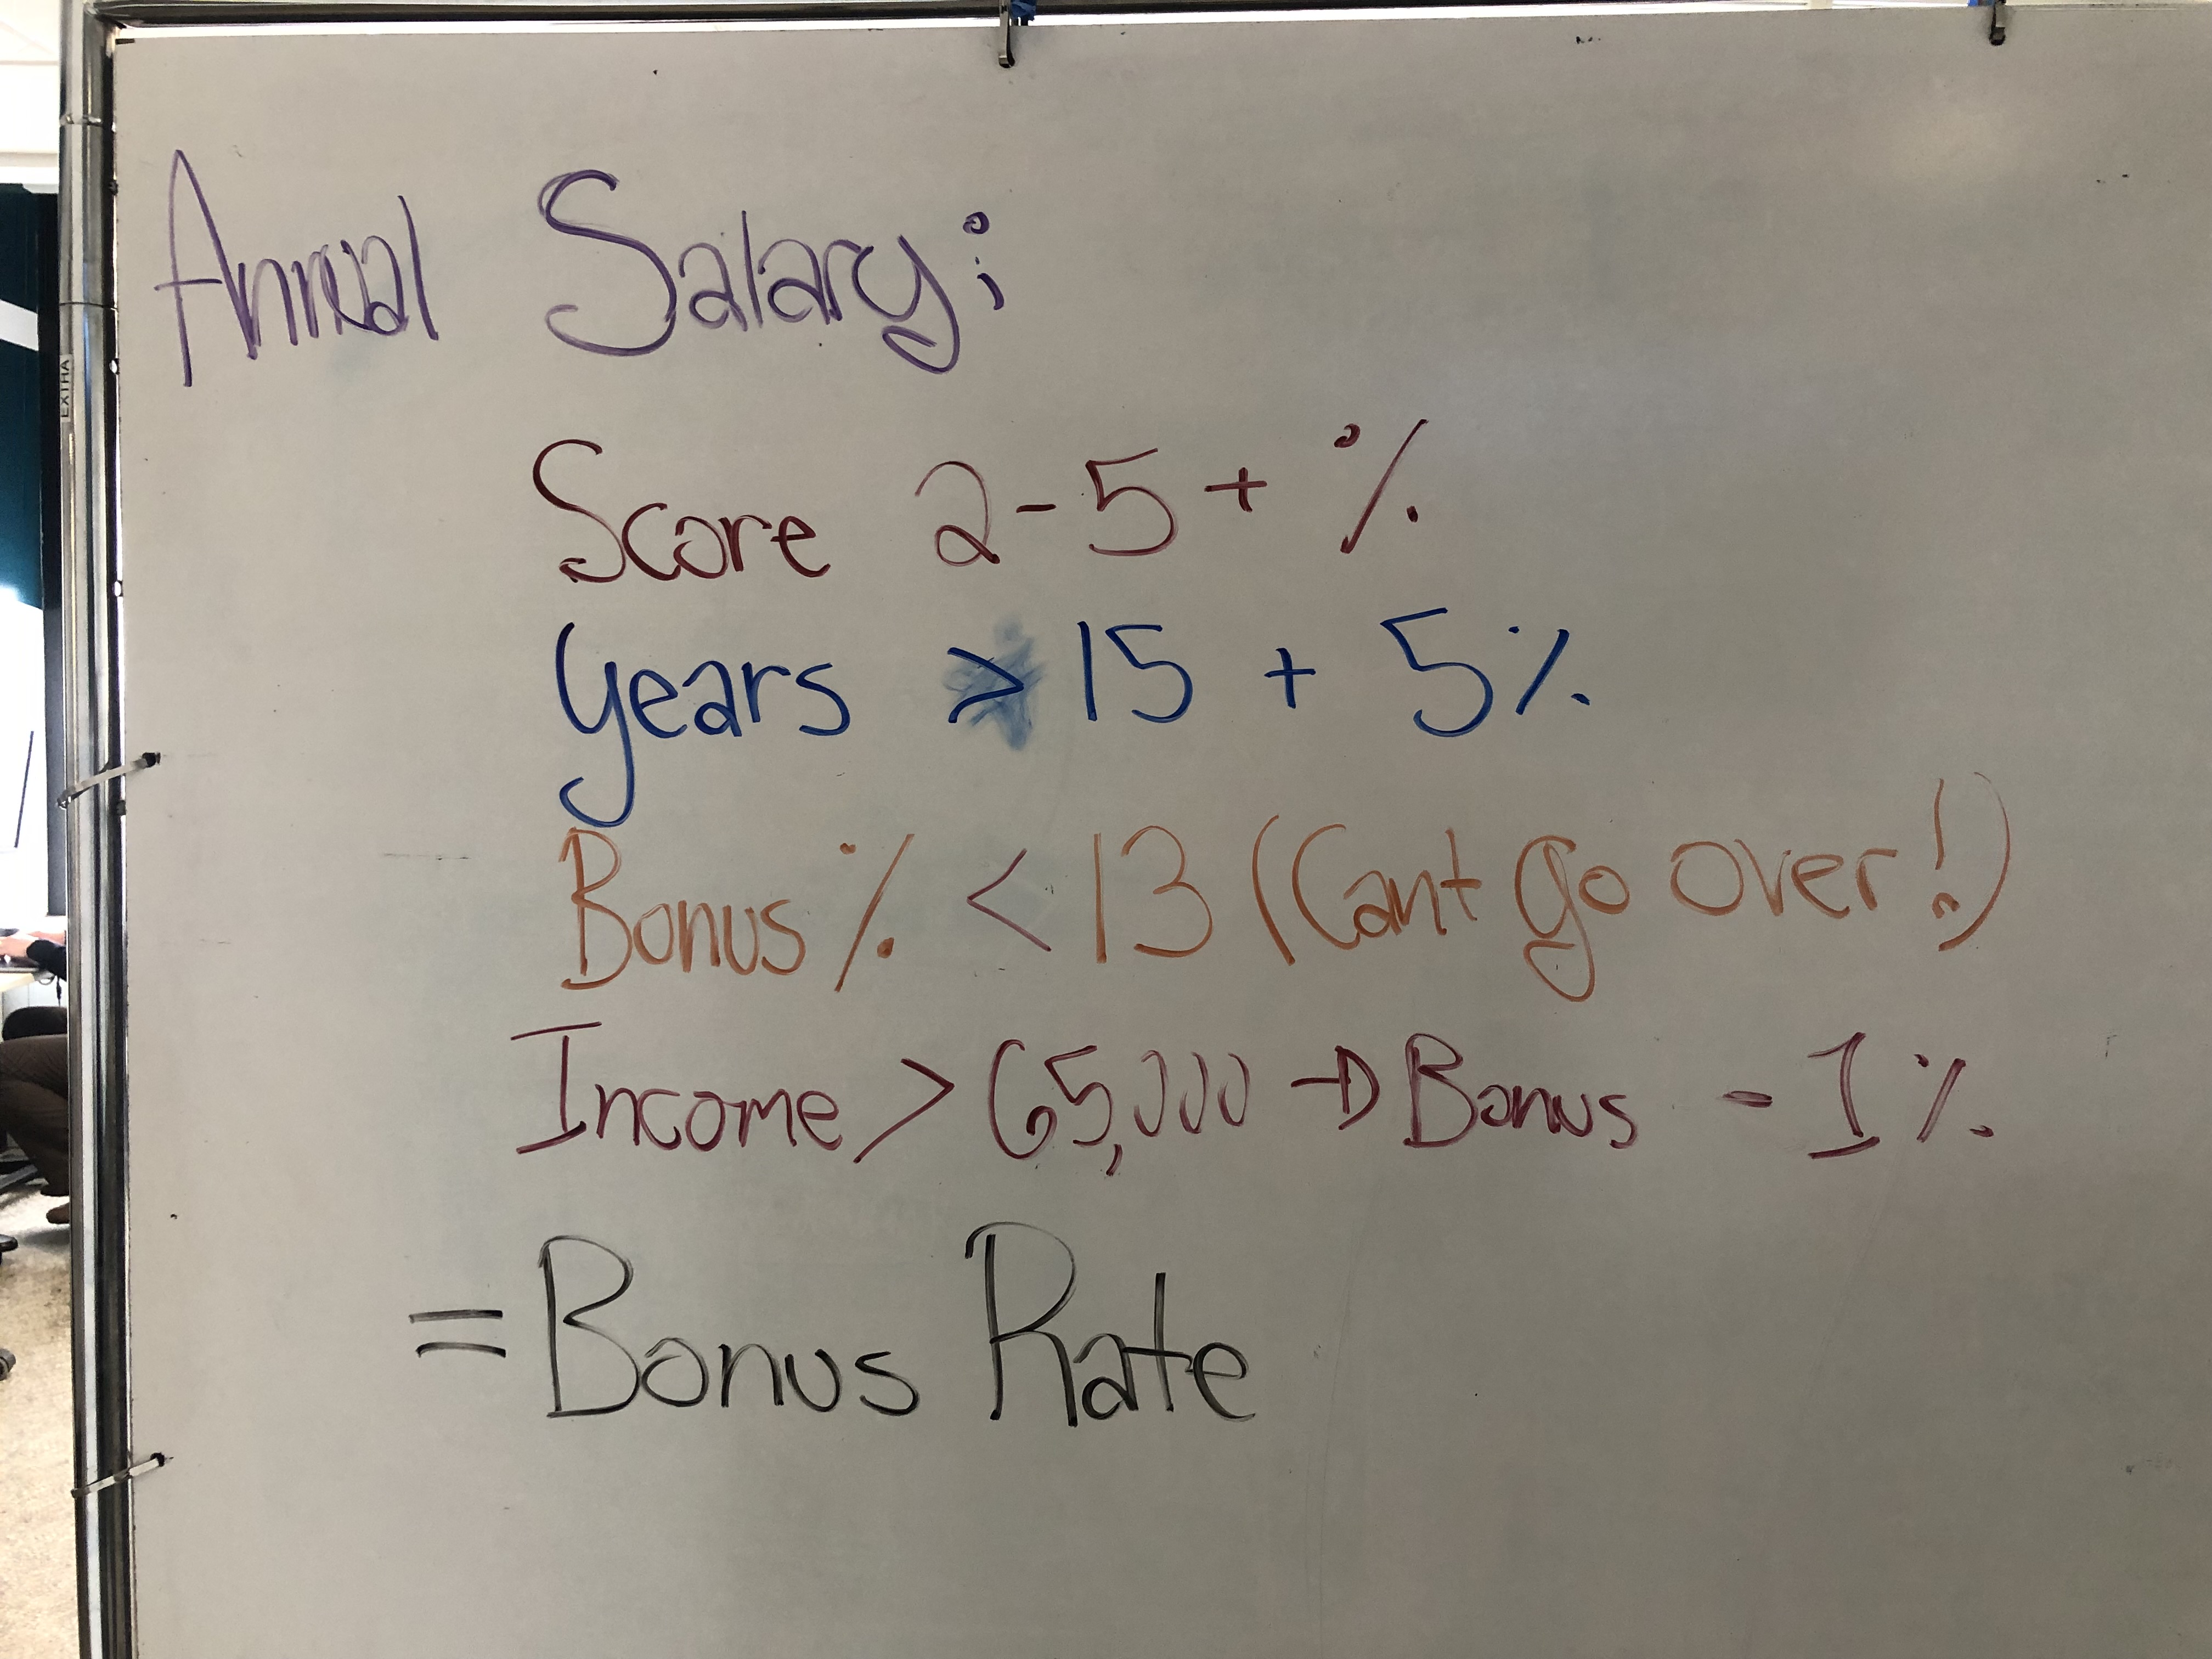 Annual Salary:
Score 2-5 + %
Years > 15 + 5%
Bonus % < 13 (Cant go over!)
Income > 65,000 → Bonus - 1%
= Bonus Rate
EXTHA